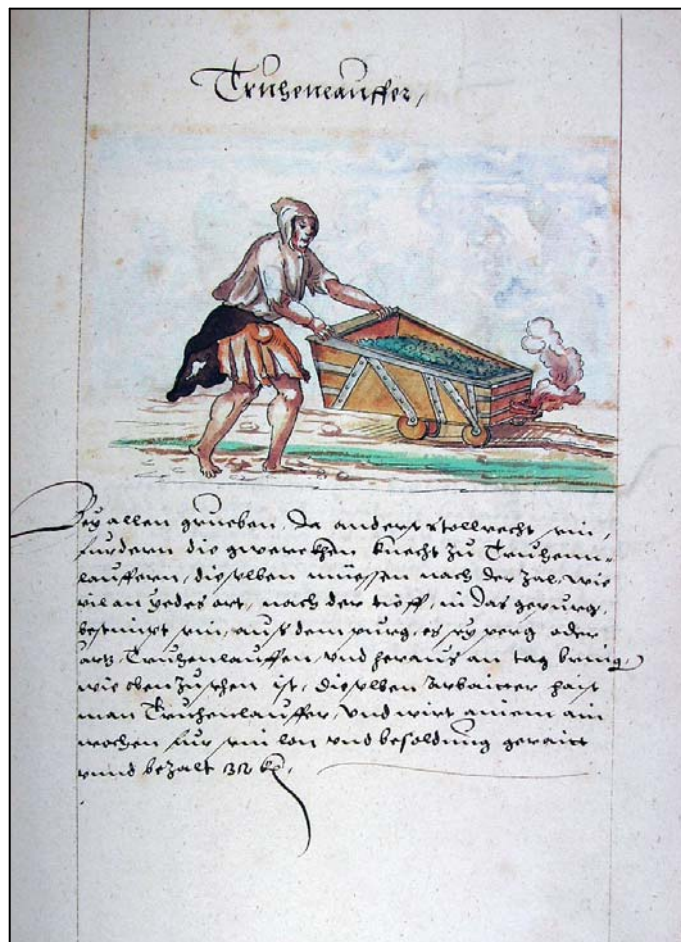 Truhenlauffer,
Bey allen grueben, da anderst stollrecht sein,
furdern die gwerckhen knecht zu Truhenn-
lauffern, dieselben müessen nach der zal, wie
vil an yedes ort, nach der tieff, in das gepurg,
bestimpt sein, aus dem purg, es sey perg oder
ärtz, Truhenlauffen, und heraus an tag bring,
wie oben zusehen ist, dieselben Arbaitter haist
man Truhenlauffer, und wirt ainem ain
wochen fur sein lon und besoldung geraitt
unnd bezalt